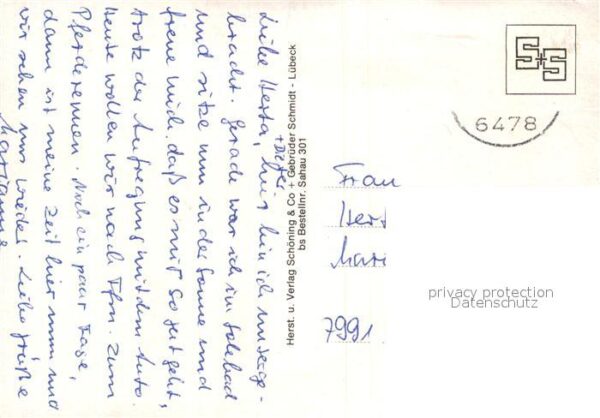 Liebe Herta, + Dieter
hier bin ich unterge-
bracht. Gerade war ich im Solebad
und sitze nun in der Sonne und
freue mich, daß es mir so gut geht,
trotz der Aufregung mit dem Auto.
Heute wollen wir nach Ffm. zum
Pferderennen. Noch ein paar Tage,
dann ist meine Zeit hier um und
wir sehen uns wieder. Liebe Grüße
Marianne
Herst. u. Verlag Schöning & Co + Gebrüder Schmidt - Lübeck
bs Bestellnr. Sahau 301
S+S
6478
Frau
Hert
Mari
7991
privacy protection
Datenschutz